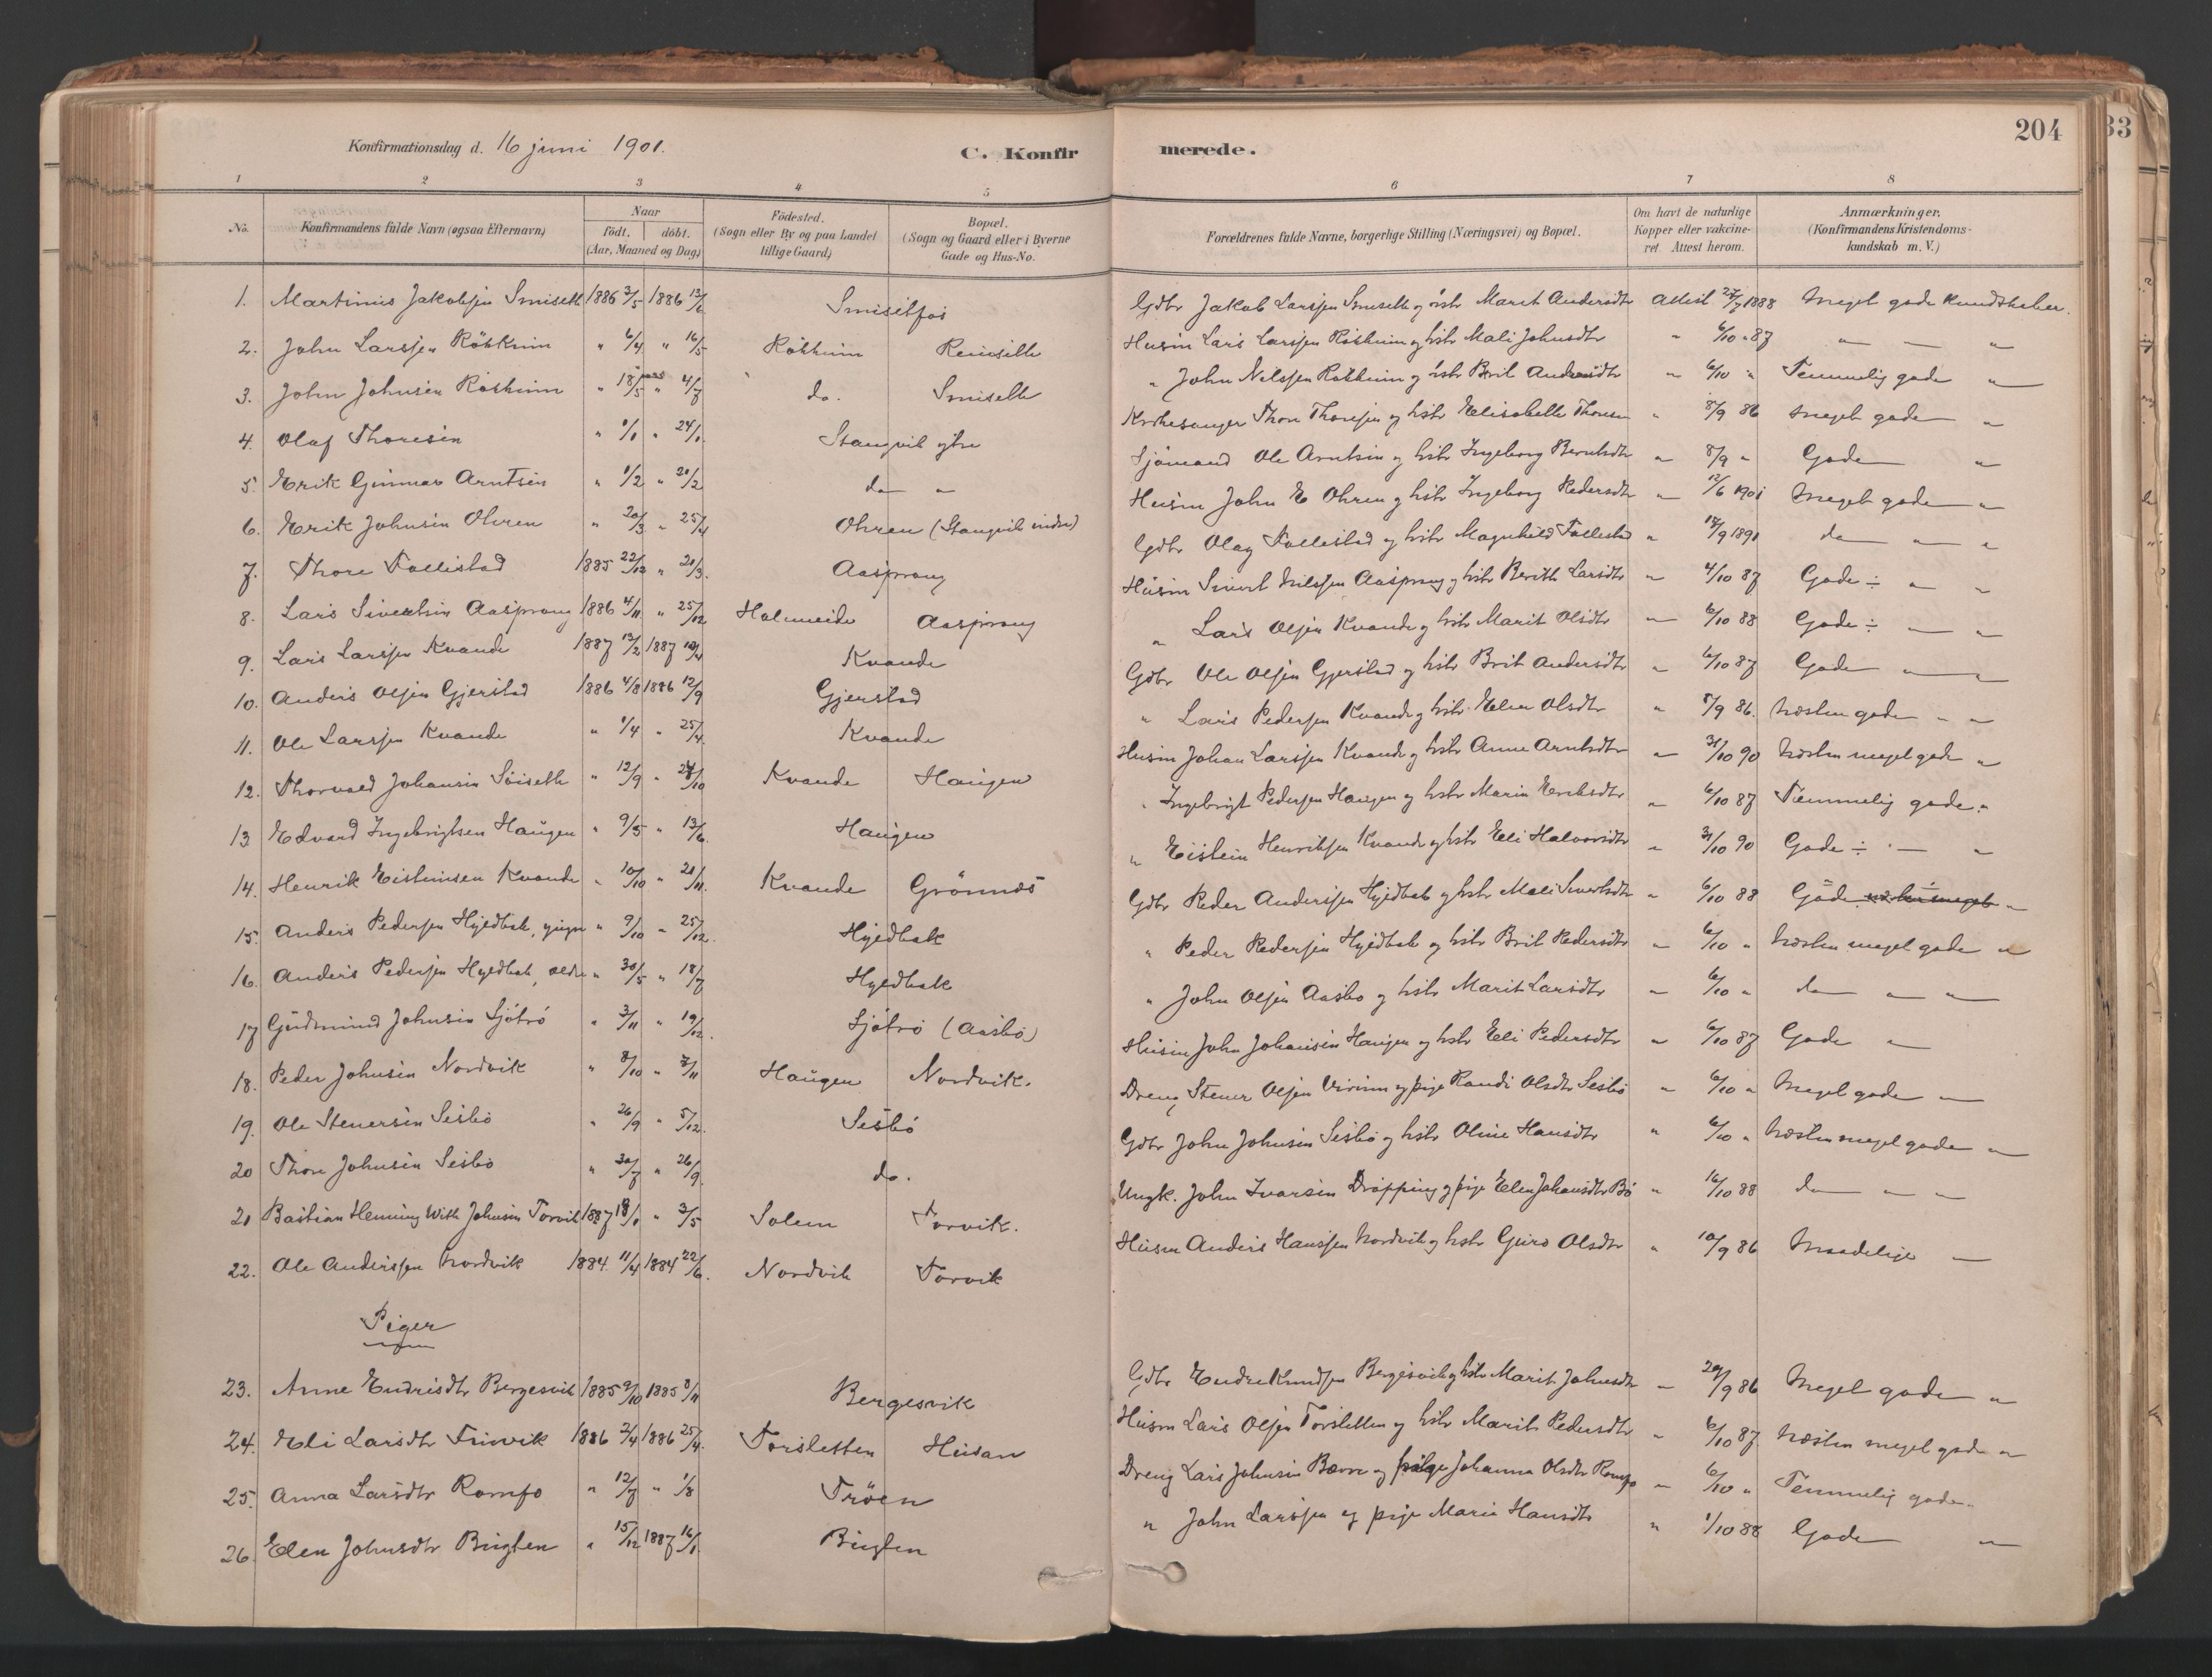 204
33
Konfirmationsdag d. 16 juni 1901.
C. Konfir merede.
1 2 3 4 5 6 7 8
No. Konfirmandens fulde Navn (ogsaa Efternavn) Naar födt. döbt. (Aar, Maaned og Dag) Födested. (Sogn eller By og paa Landet tillige Gaard) Bopæl. (Sogn og Gaard eller i Byerne Gade og Hus-No. Forældrenes fulde Navne, borgerlige Stilling (Næringsvei) og Bopæl. Om havt de naturlige Kopper eller vakcineret. Attest herom. Anmærkninger. (Konfirmandens Kristendomskundskab m. V.)
1. Martinus Jakobsen Smiseth 1886 3/5 1886 13/6 Gdbr Jakob Larssen Smiseth og hstr Marit Andersdtr Attest 1888 Meget gode Kundskaber.
2. John Larssen Rökkum " 6/4 " 16/5 Rökkum Husm Lars Larssen Röskum og hstr Mali Johnsdtr " 6/10 87 " — "
3. John Johnsen Röskum " 18/5 " 4/7 do. Smiseth " John Nilssen Rökkum og hstr Brit Andersdtr " 6/10 " Temmelig gode "
4. Olaf Thoresen " 1/1 " 24/1 Stangvik ytre Kirkesanger Thore Thoresen og hstr Elisabeth Thoresen " 8/9 86 Meget gode "
5. Erik Gunnar Arntsen " 1/2 " 21/2 do " Sjömand Ole Arntsen og hstr Ingeborg Berntsdtr " 8/9 " Gode "
6. Erik Johnsen Ohren " 20/3 " 25/4 Ohren (Stangvik indre) Husm John E Ohren og hstr Ingeborg Pedersdtr " 12/6 1901 Meget gode "
7. Thore Tallestad 1885 22/12 " 21/3. Aasprong Gdbr Olag Tallestad og hstr Magnhild Tallestad " 17/9 1891 do " "
8. Lars Sivertsen Aasprong 1886 4/11 " 25/12 Halmeide Aasprong Husm Sivert Nilssen Aasprong og hstr Berith Larsdtr " 4/10 87 Gode ÷ " "
9. Lars Larssen Kvande 1887 13/2 1887 Kvande " Lars Olsen Kvande og hstr Marit Olsdtr " 6/10 88 Gode ÷ — "
10. Anders Olsen Gjerstad 1886 4/8 1886 12/9 Gjerstad Gdbr Ole Olsen Gjerstad og hstr Brit Andersdtr " 6/10 87 Gode " "
11. Ole Larssen Kvande " 1/4 " 25/4. Kvande " Lars Pedersen Kvande og hstr Elen Olsdtr " 8/9 86. Næsten gode " "
12. Thorvald Johansen Söiseth " 12/9 " 24/10 Kvande Haugen Husm Johan Larssen Kvande og hstr Anne Arntsdtr " 31/10 90 Næsten meget gode "
13. Edvard Ingebrigtsen Haugen " 9/5 " 13/6. Haugen " Ingebrigt Pedersen Haugen og hstr Marie Eriksdtr " 6/10 87 Temmelig gode "
14. Henrik Eisteinsen Kvande " 10/10 " 21/11. Kvande Grönnæs " Eistein Henriksen Kvande og hstr Eli Halvorsdtr " 31/10 90 Gode ÷ — "
15. Anders Pedersen Hjedbak, yngre " 9/10 " 25/12. Hjedbak Gdbr Peder Anderssen Hjedbak og hstr Mali Sivertsdtr " 6/10 88 Gode "
16. Anders Pedersen Hjedbak, ældre " 30/5 " 18/7 Hjedbak " Peder Pedersen Hjedbak og hstr Brit Pedersdtr " 6/10 " Næsten meget gode "
17 Gudmund Johnsen Sjötrö " 3/11 " 19/12. Sjötrö (Aasbö) " John Olsen Aasbö og hstr Marit Larsdtr " 6/10 " do " "
18. Peder Johnsen Nordvik " 8/10 " 7/11 Haugen Nordvik. Husm John Johansen Haugen og hstr Eli Pedersdtr " 6/10 87 Gode "
19. Ole Stenersen Sesbö " 26/9 " 5/12. Sesbö Dreng Stener Olsen og pige Randi Olsdtr Sesbö " 6/10 " Meget gode "
20 Thore Johnsen Sesbö " 30/7 " 26/9. do. Gdbr John Johnsen Sesbö og hstr Oline Hansdtr " 6/10 " Næsten meget gode "
21 Bastian Henning With Johnsen Torvik 1887 18/1 " 3/5 Solem Torvik. Ungk. John Ivarsen Dröpping og pige Elen Johansdtr Bö " 16/10 88 do " "
22. Ole Anderssen Nordvik 1884 11/4 1884 22/6. Nordvik Torvik Husm Anders Hanssen Nordvik og hstr Guro Olsdtr " 10/9 86 Maadelige "
Piger
23. Anne Endresdtr Bergesvik 1885 9/10 1885 8/11 Bergesvik Gdbr Endre Knudsen Bergesvik og hstr Marit Johnsdtr " 29/9 86 Meget gode "
24. Eli Larsdtr 1886 2/4 1886 25/4. Torsletten Husan Husm Lars Olsen Torsletten og hstr Marit Pedersdtr " 6/10 87 Næsten meget gode "
25. Anna Larsdtr Romfo " 12/7 " 1/8 Tröen Dreng Lars Johnsen Bævre og pige Johanna Olsdtr Romfo " 6/10 " Temmelig gode "
26. Elen Johnsdtr Bugten " 15/12 1887 16/1 Bugten " John Larssen og pige Marie Hansdtr " 1/10 88 Gode "